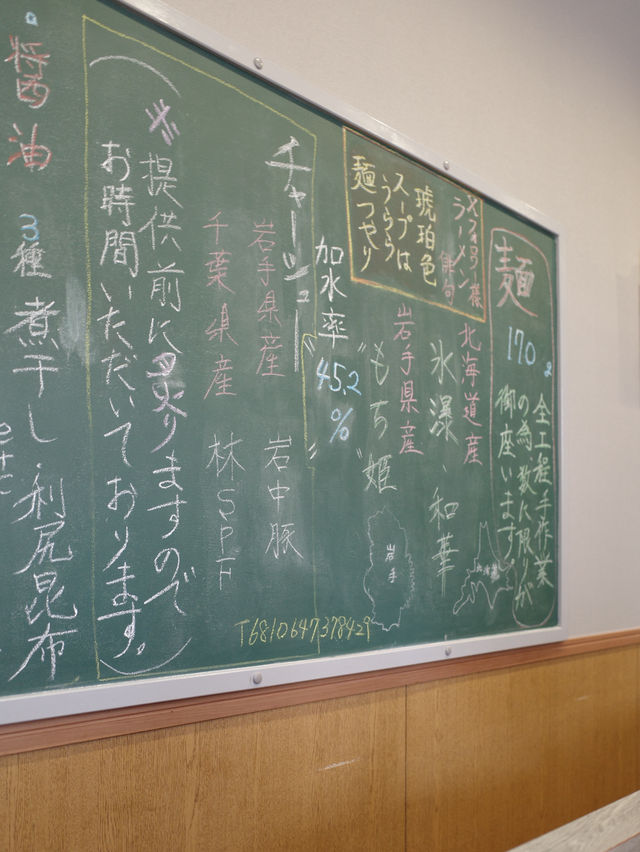 麺
170g
全工程手作業
の為数に限りが
御座います。
北海道産
氷瀑、和華
岩手県産
"もち姫"
加水率
45.2
%
北海道
岩手
様
ラーメン
俳句
琥珀色
スープは
うららら
麺つやり
チャーシュー
岩手県産 岩中豚
千葉県産 林SPF
※提供前に炙りますので
お時間いただいております。
T6810647378429
醤油
3種煮干し、利尻昆布